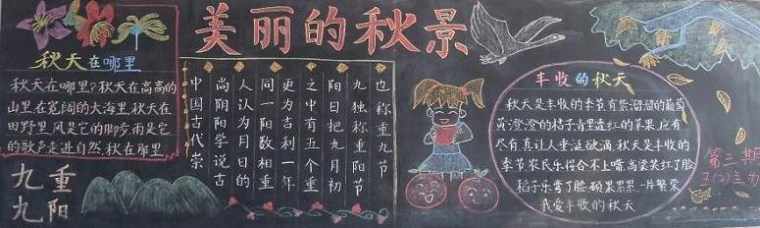 美丽的秋景
秋天在哪里
秋天在哪里?秋天在高高的
山里在宽阔的大海里.秋天在
田野里.风是它的脚步雨是它
的歌声走进自然.秋在哪里
九重
九阳
中国古代崇
尚阴阳学说古
人认为月日的
同一阳数相重
更为吉利一年
之中有五个重
阳日把九月初
九独称重阳节
也称重九节
丰收的秋天
秋天是丰收的季节有紫溜溜的葡萄
黄澄澄的桔子青里透红的苹果,应有
尽有.真让人垂涎欲滴.秋天是丰收的
季节农民乐得合不上嘴,高粱笑红了脸
稻子乐弯了腰.硕果累累一片繁荣
我爱丰收的秋天
第三期
主办